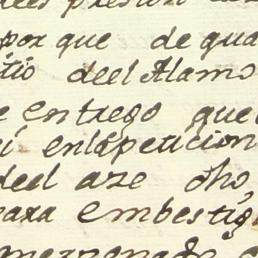 por que de qua
itio deel Alamo
e entrego que
i enlapeticion
deel aze dho,
para embestig